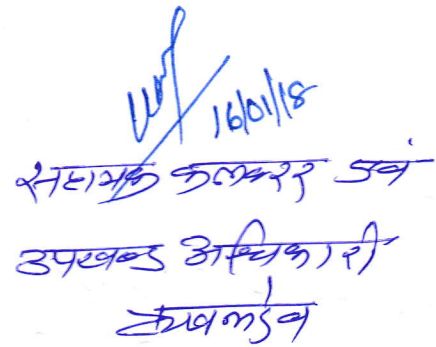 16/01/18
सहायक कलक्टर एवं
उपखण्ड अधिकारी